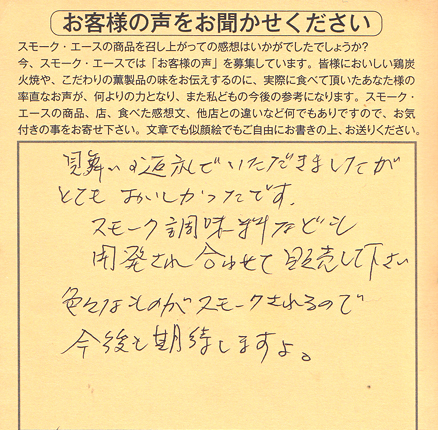 お客様の声をお聞かせください
スモーク・エースの商品を召し上がっての感想はいかがでしたでしょうか?
今、スモーク・エースでは「お客様の声」を募集しています。皆様においしい鶏炭
火焼や、こだわりの薫製品の味をお伝えするのに、実際に食べて頂いたあなた様の
率直なお声が、何よりの力となり、また私どもの今後の参考になります。スモーク・
エースの商品、店、食べた感想文、他店との違いなど何でもありですので、お気
付きの事をお寄せ下さい。文章でも似顔絵でもご自由にお書きの上、お送りください。
見舞いの返礼でいただきましたが
とてもおいしかったです。
スモーク調味料なども
開発され合わせて販売して下さい
色々なものがスモークされるので
今後も期待しますよ。